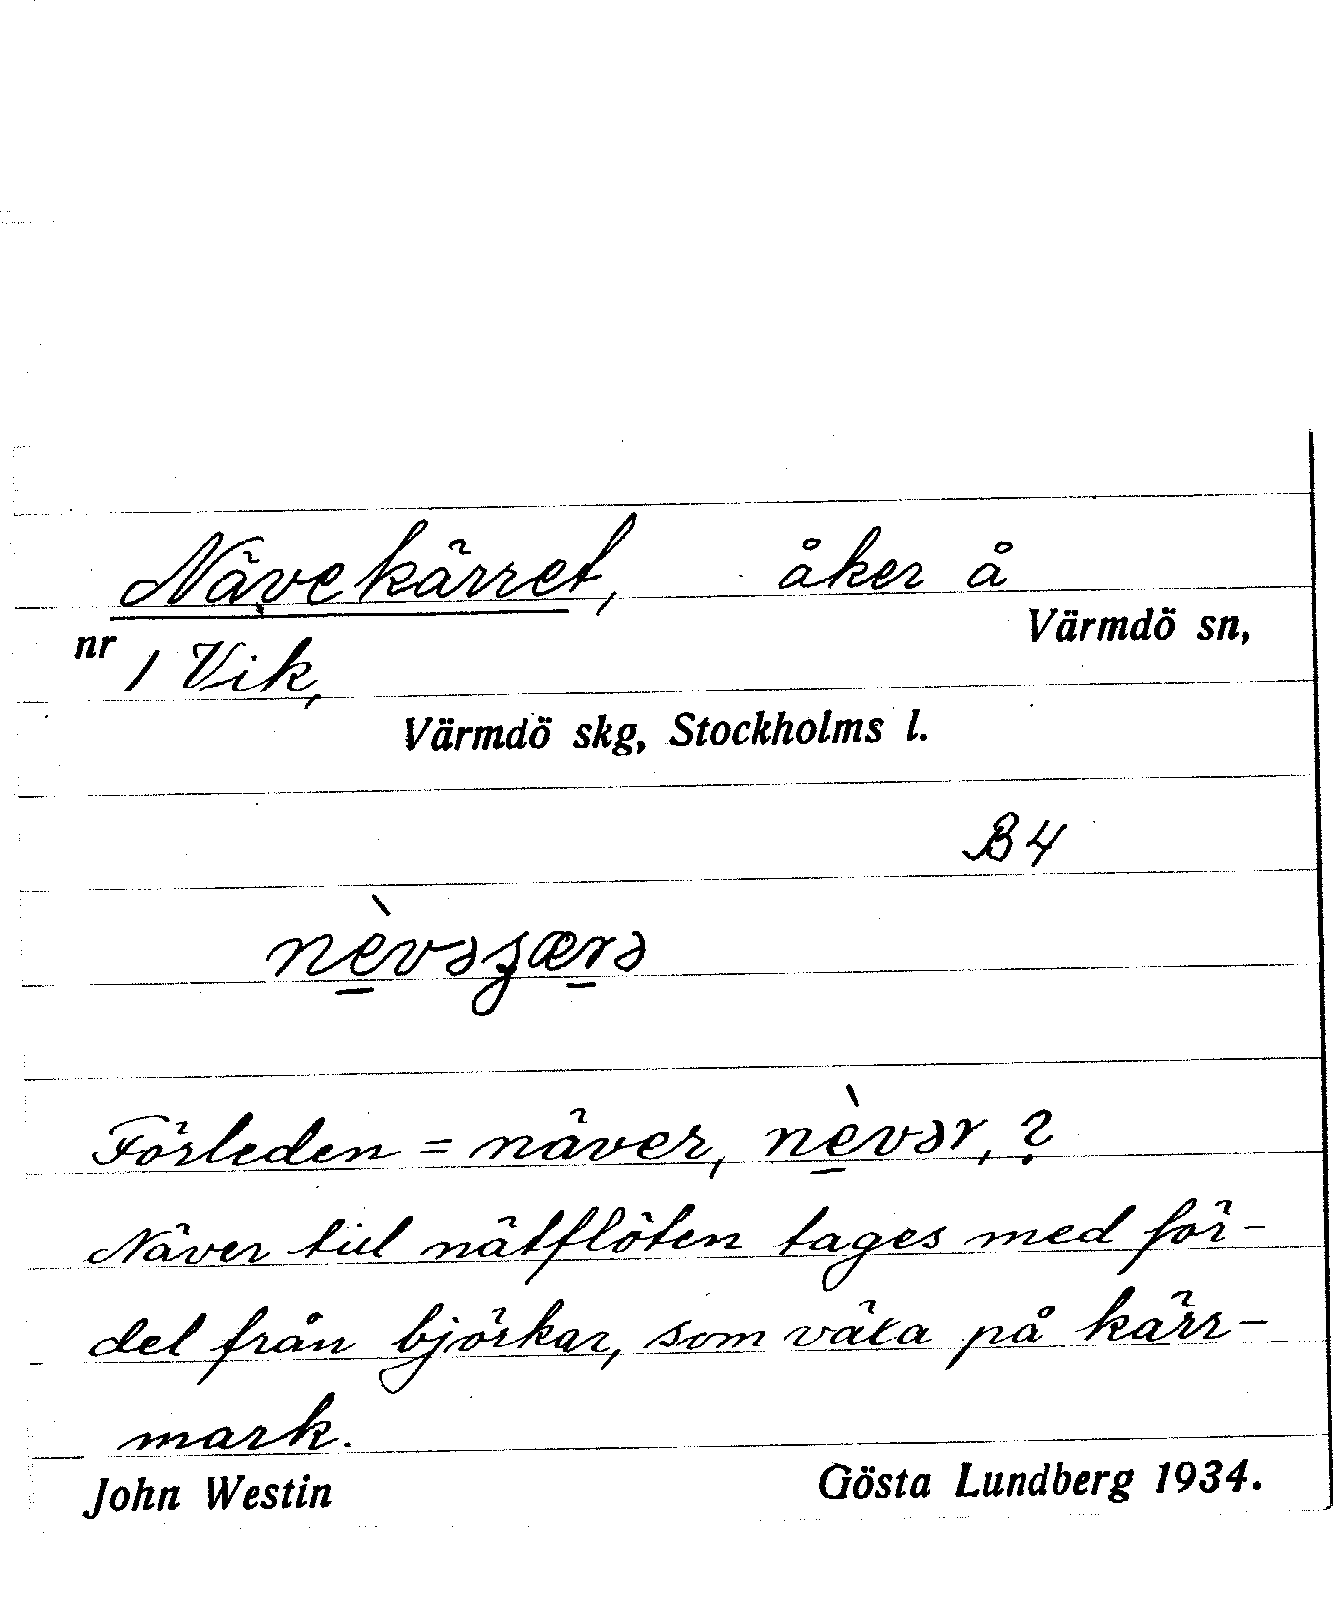 Nävekärret, åker å
Värmdö sn,
nr 1 Vik,
Värmdö skg, Stockholms l.
B4
nèvəʒærə
Förleden = näver, nèvər, ?
Näver till nätflöten tages med för-
del från björkar, som växa på kärr-
mark.
John Westin Gösta Lundberg 1934.